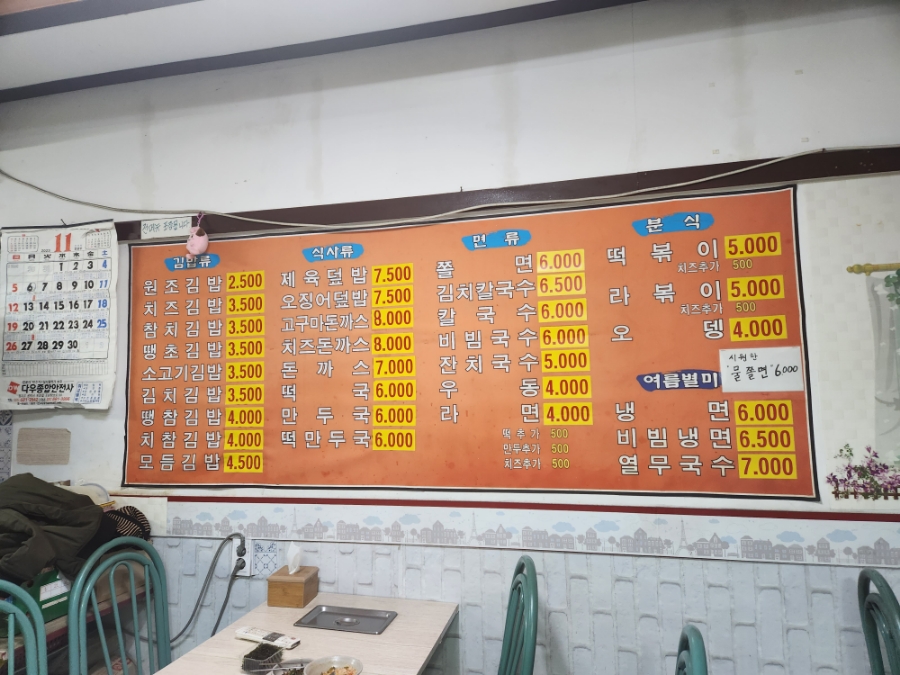 11
日 月 火 水 木 金 土
1 2 3 4
5 6 7 8 9 10 11
12 13 14 15 16 17 18
19 20 21 22 23 24 25
26 27 28 29 30
다우종합안전사
김밥류
원조김밥 2.500
치즈김밥 3.500
참치김밥 3.500
땡초김밥 3.500
소고기김밥 3.500
김치김밥 3.500
땡참김밥 4.000
치참김밥 4.000
모듬김밥 4.500
식사류
제육덮밥 7.500
오징어덮밥 7.500
고구마돈까스 8.000
치즈돈까스 8.000
돈까스 7.000
떡국 6.000
만두국 6.000
떡만두국 6.000
면류
쫄면 6.000
김치칼국수 6.500
칼국수 6.000
비빔국수 6.000
잔치국수 5.000
우동 4.000
라면 4.000
떡추가 500
만두추가 500
치즈추가 500
분식
떡볶이 5.000
치즈추가 500
라볶이 5.000
치즈추가 500
오뎅 4.000
시원한
"물쫄면" 6000
여름별미
냉면 6.000
비빔냉면 6.500
열무국수 7.000